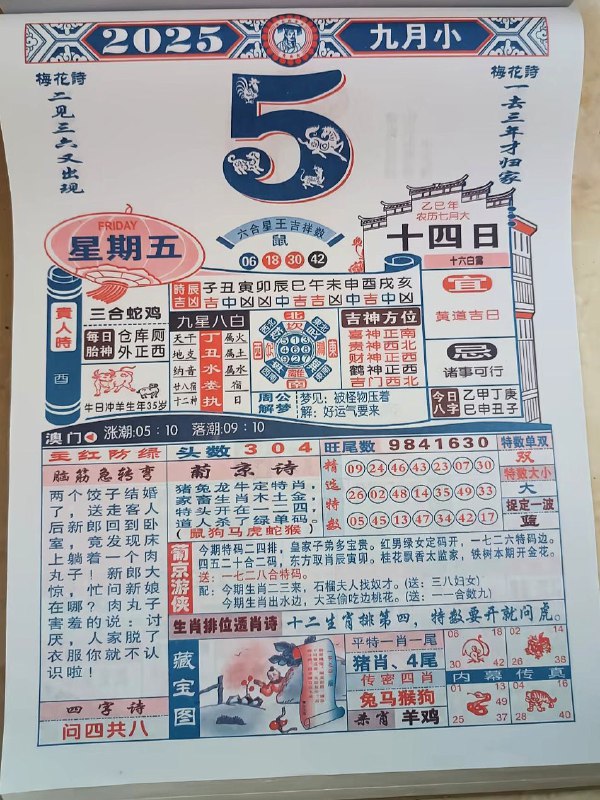 2025
九月小
梅花詩
二见三六又出现
5
梅花詩
一去三年才归家
FRIDAY
星期五
六合星王吉祥数
鼠
06 18 30 42
乙巳年
农历七月大
十四日
十六白露
貴人時
酉
三合蛇鸡
每日胎神
仓库厕
外正西
牛日冲羊生年35岁
時辰吉凶
子丑寅卯辰巳午未申酉戌亥
九星八白
天干
地支
纳音
廿八宿
十二神
丁丑水娄执
属火
属土
属水
宿
日
北
坎
南
吉神方位
喜神正南
贵神西北
财神正西
鹤神正西
吉门西北
周公解梦
梦见：被怪物压着
解：好运气要来
宜
黄道吉日
忌
诸事可行
今日八字
乙甲丁庚
巳申丑子
澳门
涨潮:05：10 落潮:09：10
主红防绿
头数 3 0 4
旺尾数 9841630
特数单双
双
特数大小
大
捉定一波
蓝
脑筋急转弯
两个饺子结婚了，送走客人后新郎回到卧室，竟发现床上躺着一个肉丸子！新郎大惊，忙问新娘在哪？肉丸子害羞的说：讨厌，人家脱了衣服你就不认识啦！
葡京诗
猪兔龙牛定特肖，
家畜生肖木土金，
特头开在一二四，
道人杀了绿单码。
(鼠狗马虎蛇猴)
精选特数
09 24 46 43 23 07 30
26 02 48 14 35 49 33
05 45 13 47 34 42 17
葡京游侠
今期特码二四排，皇家子弟多宝贵。红男绿女定码开，一七二六特码边。
四五二十合二码，东方取肖辰寅卯。桂花飘香太监家，铁树本期开金花。
送：一七二八合特码。
配：今期生肖二三来，石榴夫人找奴才。(送：三八妇女)
今期生肖出水边，大圣偷吃边桃花。(送：一一合数九)
生肖排位透肖诗
十二生肖排第四，特数要开就问虎。
四字诗
问四共八
藏宝图
平特一肖一尾
猪肖、4尾
传密四肖
兔马猴狗
杀肖
羊鸡
06 18
30 42
02 14
26 38
内幕传真
01 13
25 37
04 16
28 40